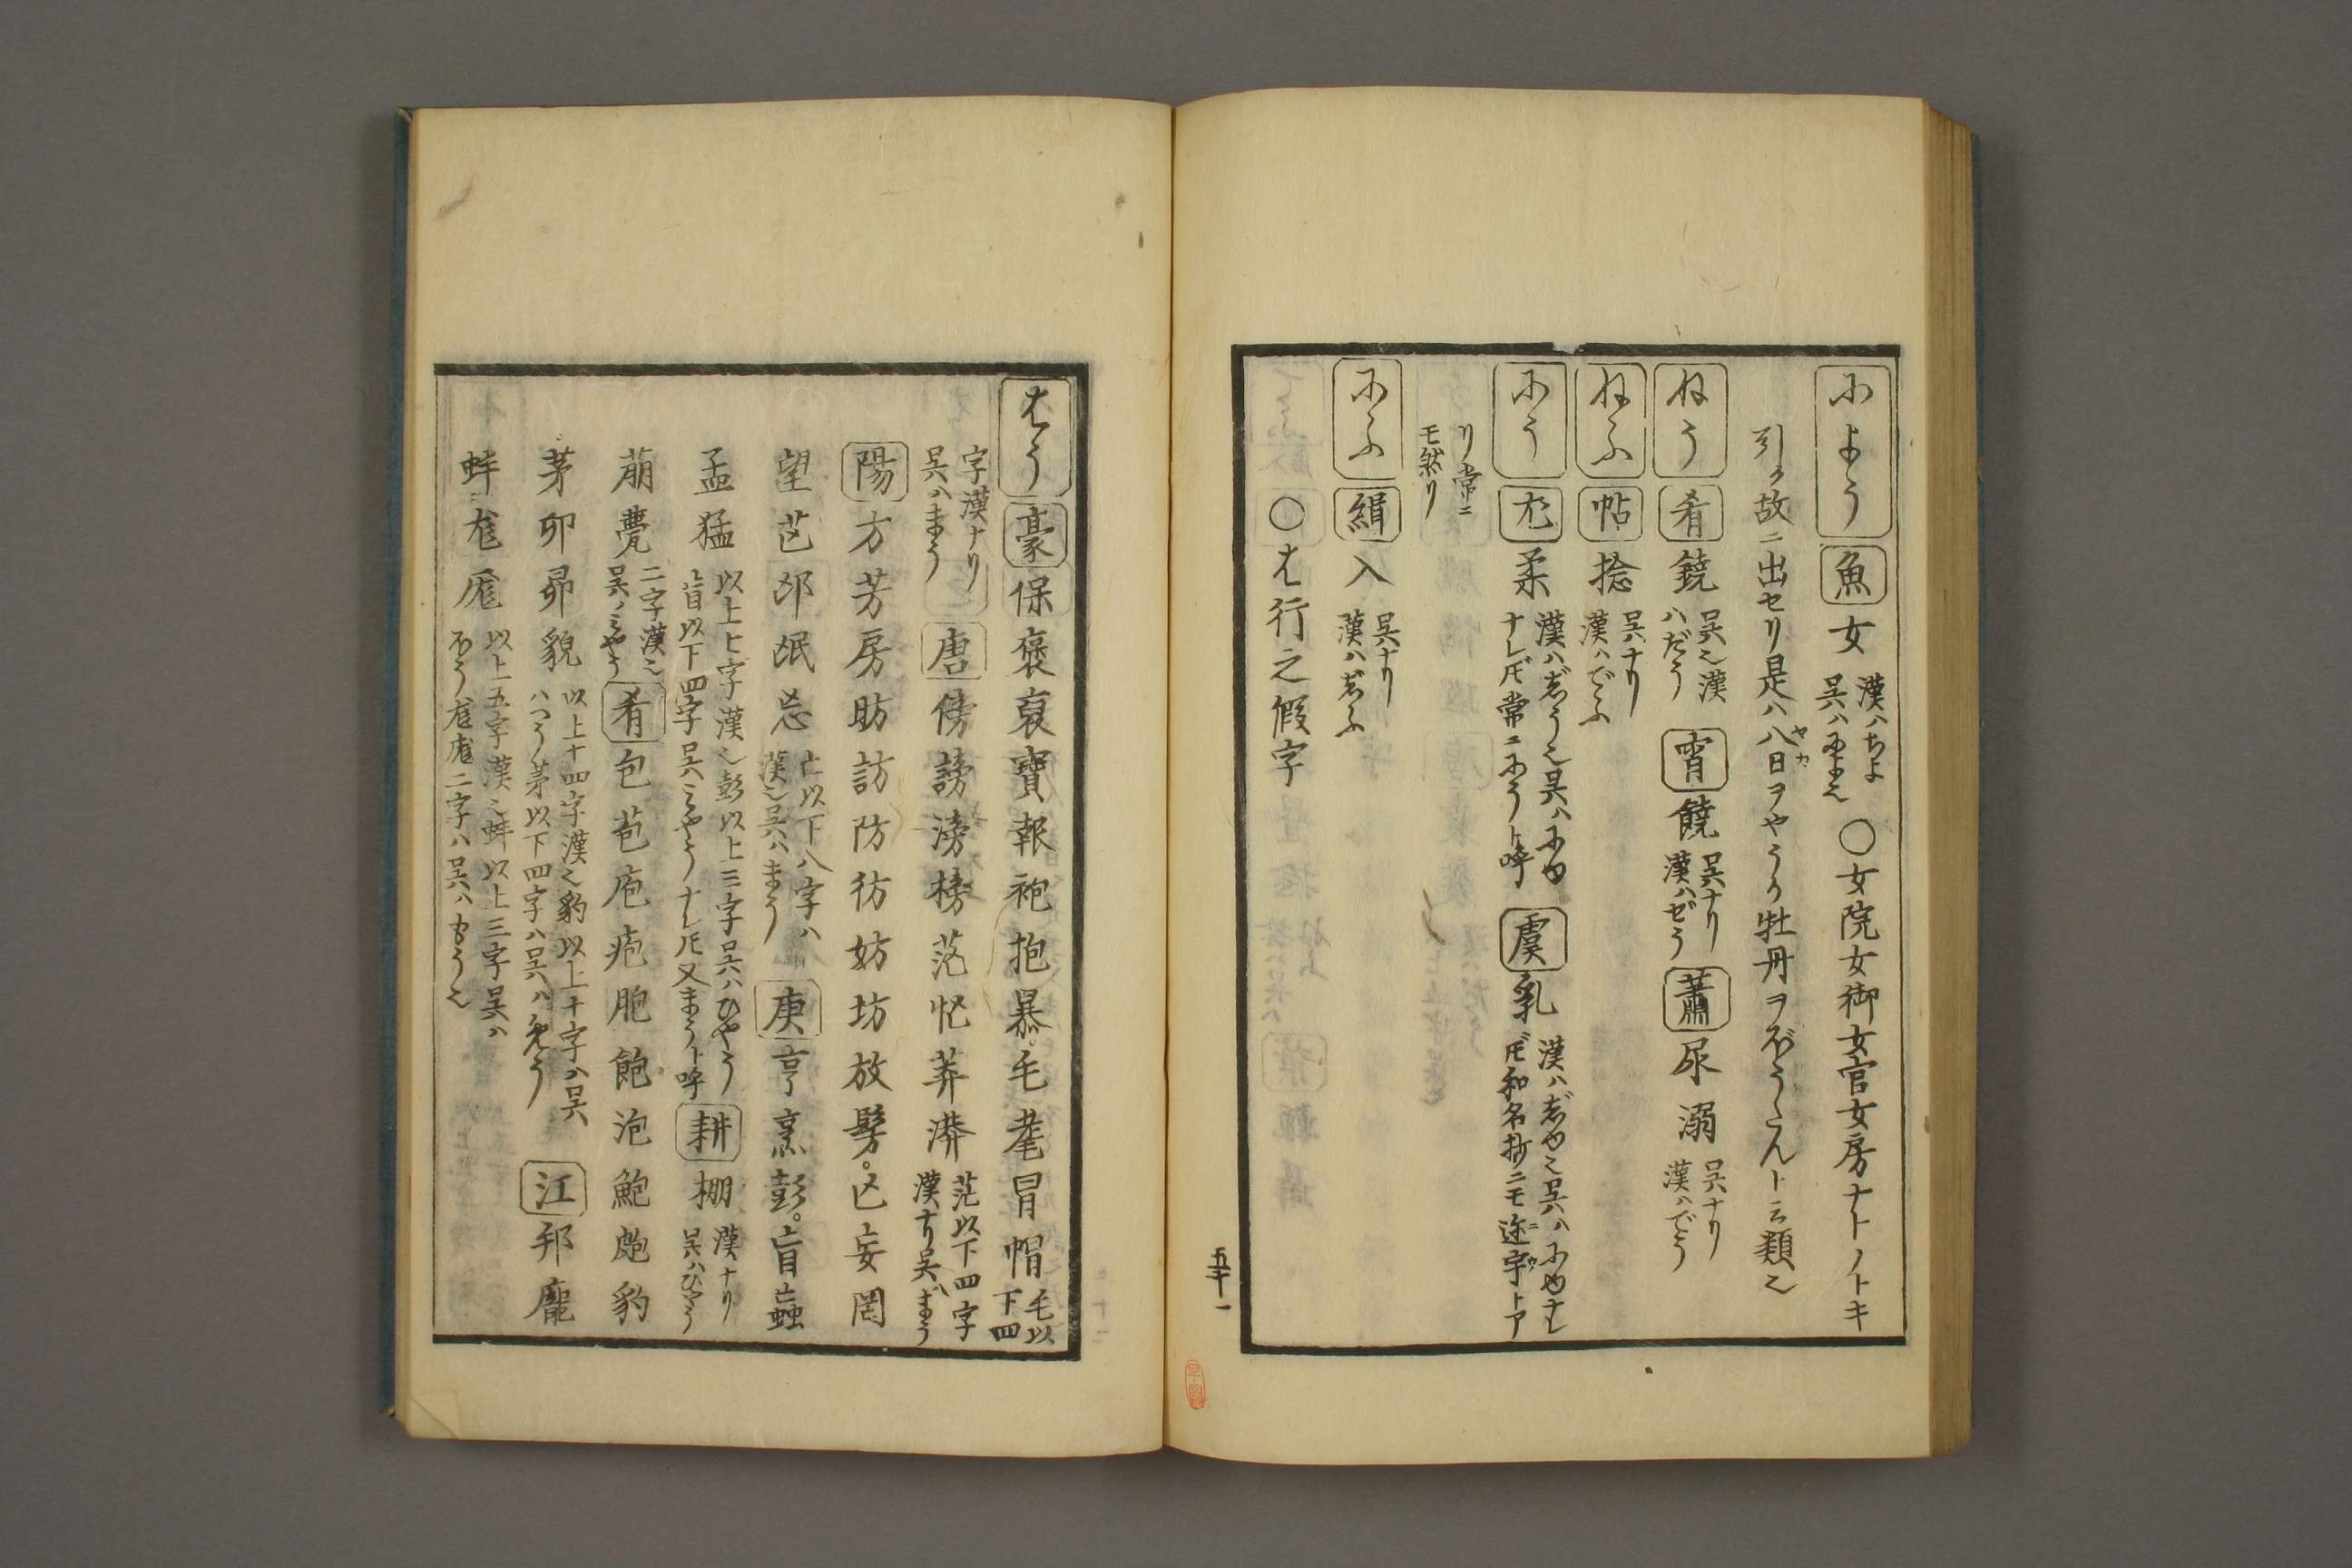 によう 魚 女 漢ハちよ
呉ハによ也 ○女院女御女官女房ナトノトキ
引ク故ニ出セリ是ハ八日ヲやうか牡丹ヲぼうたんト云類也
ねう 肴 鐃 呉也漢
ハだう 宵 饒 呉ナリ
漢ハぜう 蕭 尿溺 呉ナリ
漢ハでう
ねふ 帖 捻 呉ハナリ
漢ハでふ
にう 尤 柔 漢ハじう也呉ハにゆ
ナレ𪜈常ニにうト呼 虞 乳 漢ハじゆ也呉ハにゆナレ
𪜈和名抄ニモ迩宇トア
リ常ニ
モ然リ
にふ 緝 入 呉ナリ
漢ハじふ
○は行之假字
五十一
はう 豪 保褒裒寶報袍抱暴。毛耄冒帽 毛以
下四
字漢ナリ
呉ハまう 唐 傍謗滂榜茫忙莽漭 茫以下四字
漢ナリ呉ハまう
陽 方芳房昉訪防彷妨坊放髣。亡妄罔
望芒邙氓忘 亡以下八字ハ
漢也呉ハまう 庚 亨烹彭。盲蝱
孟猛 以上七字漢也彭以上三字呉ハひやう
盲以下四字呉ハみやうナレ𪜈又まうト呼 耕 棚 漢ナリ
呉ハひやう
萠甍 二字漢也
呉ハみやう 肴 包苞庖疱胞飽泡鮑皰豹
茅卯昴貌 以上十四字漢也豹以上十字ハ呉
ハへう茅以下四字ハ呉ハめう 江 邦龐
蚌尨厖 以上五字漢也蚌以上三字呉ハ
ほう尨厖二字ハ呉ハもう也